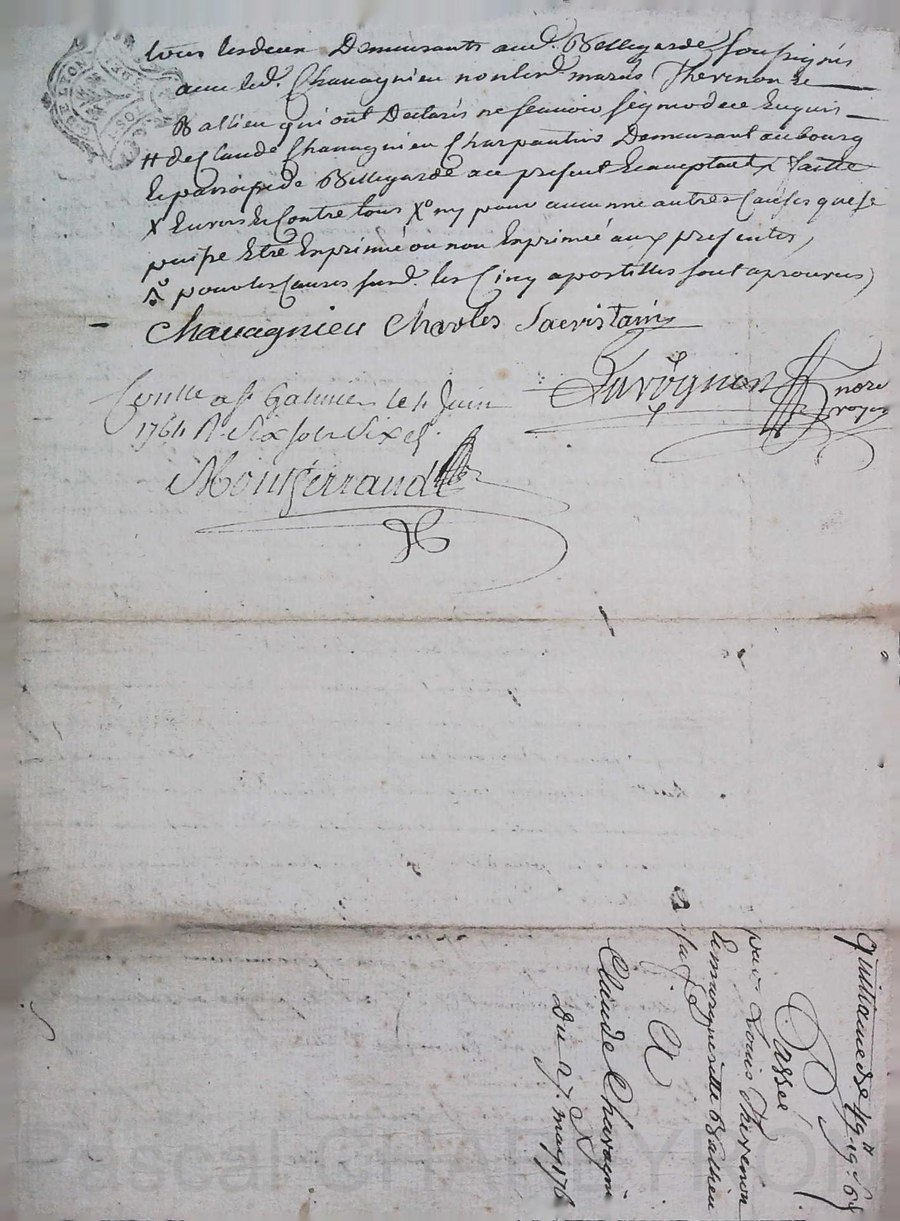 tous les deux Demeurants aud. Bellegarde soussignés
avec led. Chavagnieu non lesd. mariés Thevenon et
Ballieu qui ont Declarés ne sçavoir signer de ce Enquis
# de Claude Chavagnieu Charpentier Demeurant au bourg
Et paroisse de Bellegarde au present Et acceptant
X Envers Et Contre tous Xo ny pour aucunne autres Causes que se
puisse Etre Exprimée ou non Exprimée aux presentes
pour les Causes susd. les Cinq apostilles sont aprouvées
Chavagnieu Charles Sacristain
Favrognon nore royal
Conlle a St Galmier le 4 Juin
1764 R. Six sols Six d.
Montferrand
quittance de 49 # 19 s 6 d
Passée
par Louis Thevenon
Et sa femme
A
Claude Chavagni
Du 27. may 176
Pascal CHABEYRON